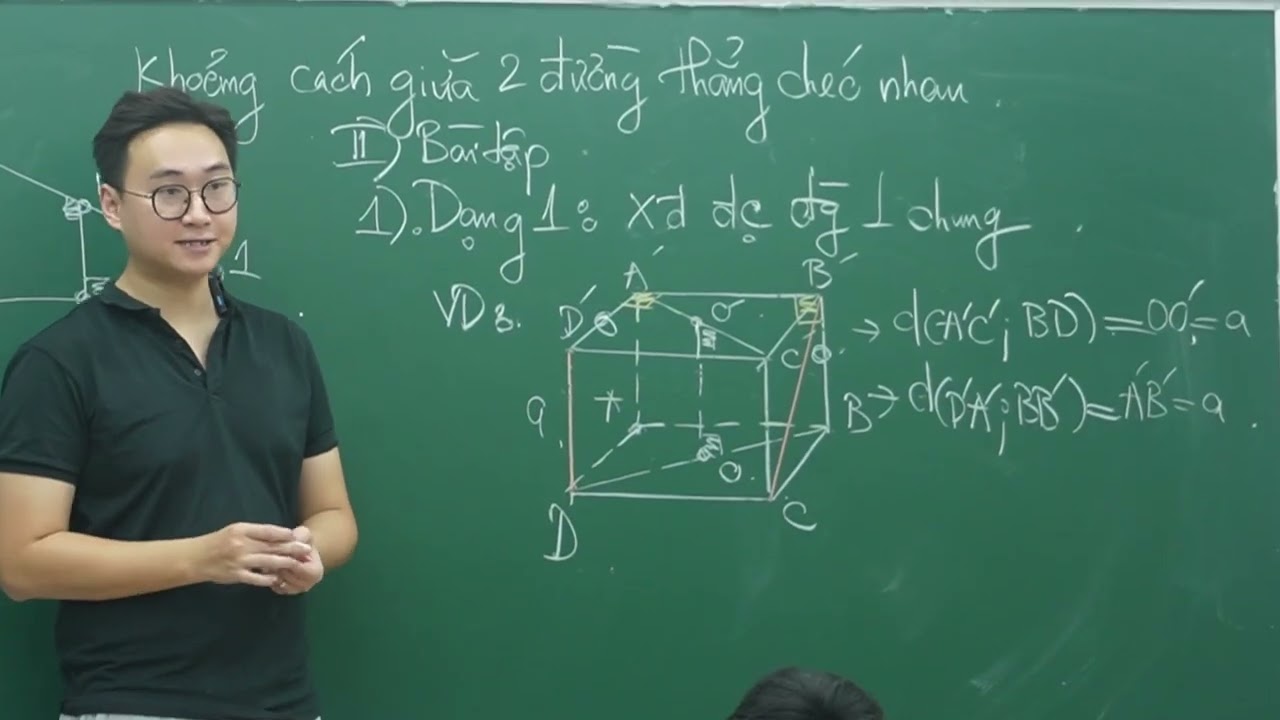 Khoảng cách giữa 2 đường thẳng chéo nhau.
II) Bài tập
1). Dạng 1: Xđ đc đg ⊥ chung
1
VD3.
A' B'
D' O'
C'
→ d(A'C'; BD) = OO' = a
a A
B → d(D'A'; BB') = A'B' = a.
O
D C